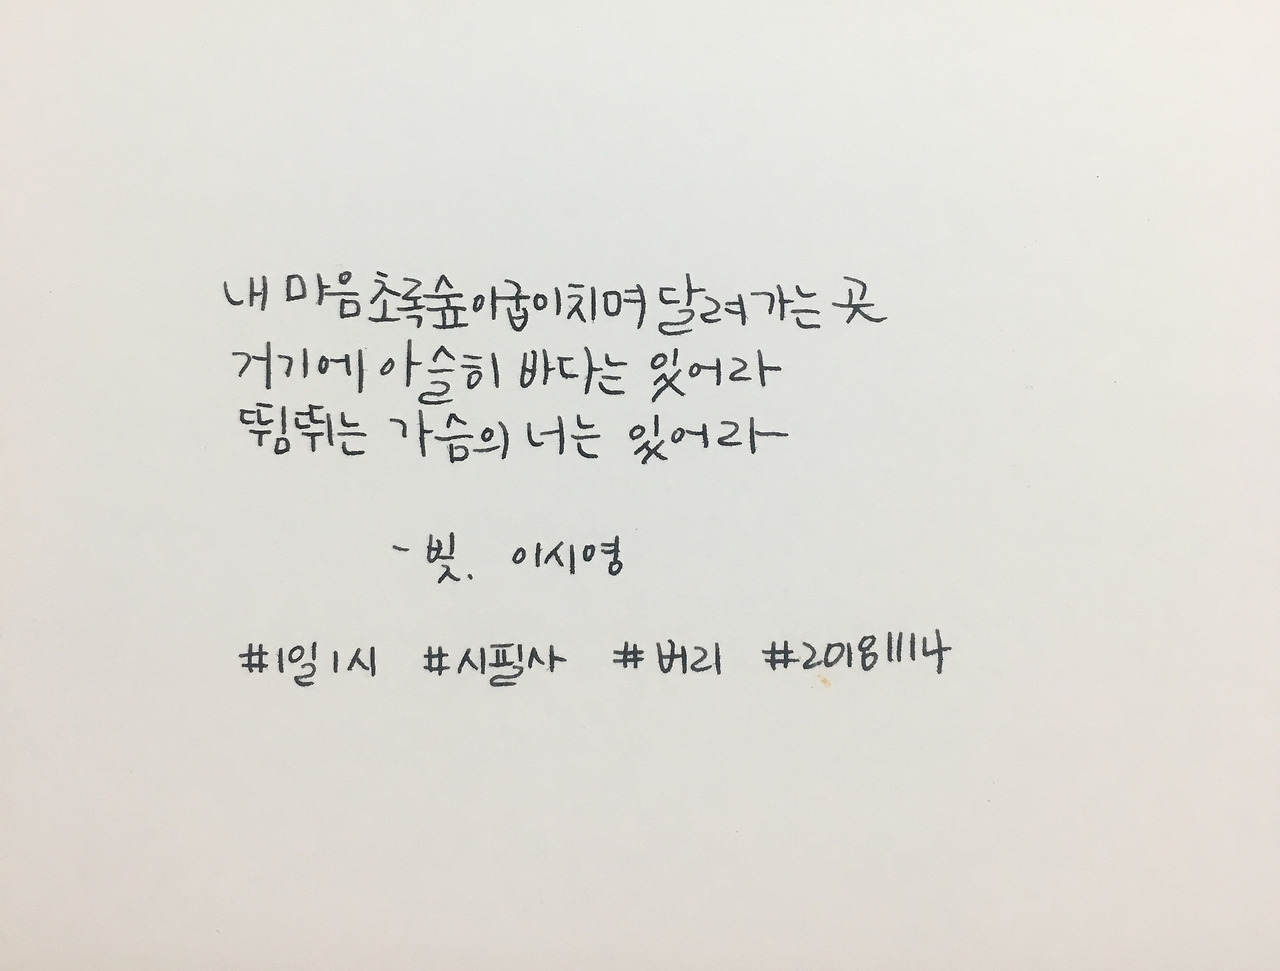 내 마음 초록숲이 굽이치며 달려가는 곳
거기에 아슬히 바다는 있어라
뜀뛰는 가슴의 너는 있어라
- 빛. 이시영
#1일1시 #시필사 #버리 #20181114